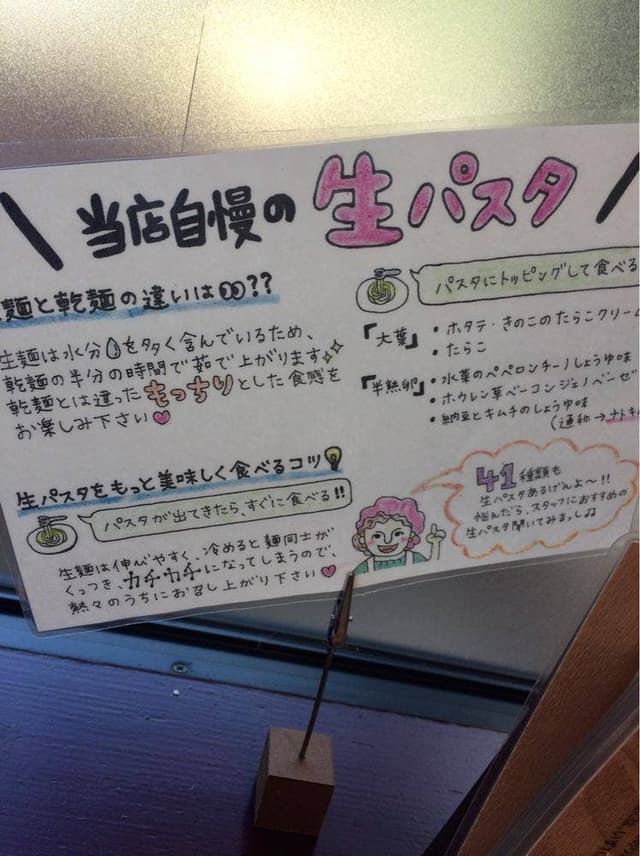 当店自慢の 生パスタ
麺と乾麺の違いは??
生麺は水分を多く含んでいるため、
乾麺の半分の時間で茹で上がります
乾麺とは違ったもっちりとした食感を
お楽しみ下さい
生パスタをもっと美味しく食べるコツ
パスタが出てきたら、すぐに食べる!!
生麺は伸びやすく、冷めると麺同士が
くっつき、カチカチになってしまうので、
熱々のうちにお召し上がり下さい
パスタにトッピングして食べる
「大葉」・ホタテ・きのこのたらこクリーム
・たらこ
「半熟卵」・水菜のペペロンチーノしょうゆ味
・ホウレン草ベーコンジェノベーゼ
・納豆とキムチのしょうゆ味
(通称→ナトキ
41種類も
生パスタあるげんよ〜!!
悩んだら、スタッフにおすすめの
生パスタ聞いてみまっし♫